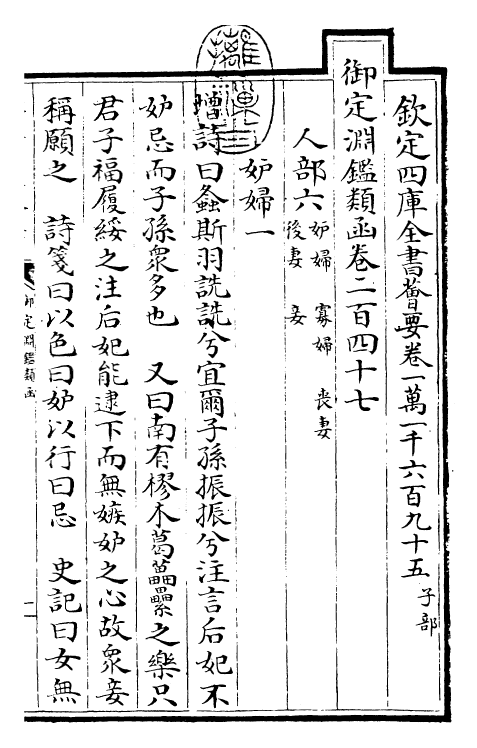 欽定四庫全書薈要卷一萬一千六百九十五 子部
御定淵鑑類函卷二百四十七
人部六 妒婦 寡婦 喪妻 後妻 妾
妒婦一
增詩曰螽斯羽詵詵兮宜爾子孫振振兮注言后妃不
妒忌而子孫衆多也 又曰南有樛木葛藟纍之樂只
君子福履綏之注后妃能逮下而無嫉妒之心故衆妾
稱願之 詩箋曰以色曰妒以行曰忌 史記曰女無
御定淵鑑類函
一